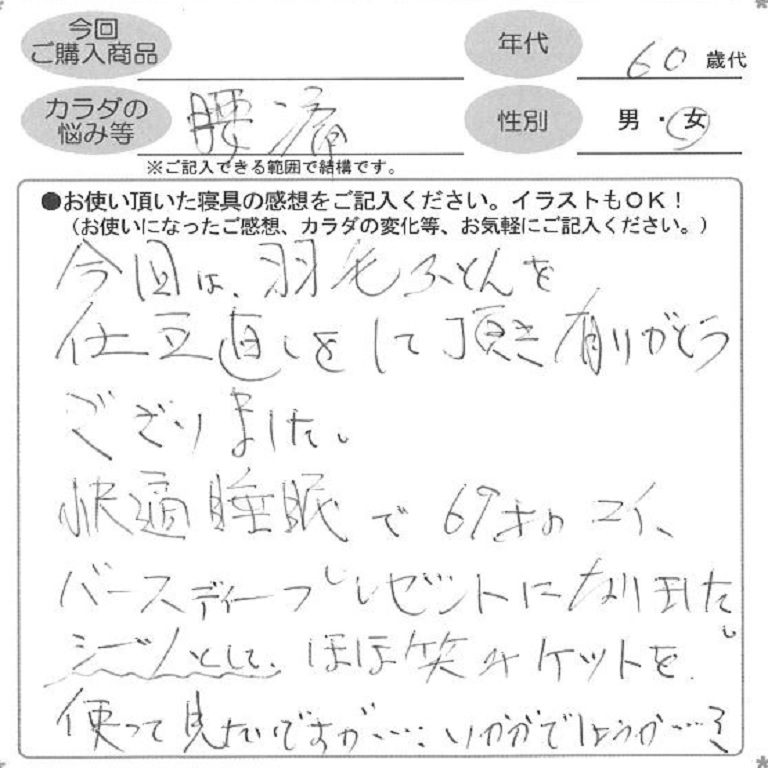 今回
ご購入商品
年代
60 歳代
カラダの
悩み等
腰痛
性別
男・女
※ご記入できる範囲で結構です。
●お使い頂いた寝具の感想をご記入ください。イラストもOK!
(お使いになったご感想、カラダの変化等、お気軽にご記入ください。)
今回は、羽毛ふとんを
仕立直しをして頂き有りがとう
ございました。
快適睡眠で69才の
バースディープレゼントになりました。
として、ほほ笑みケットを
使って見たいですが…:いかがでしょうか…?